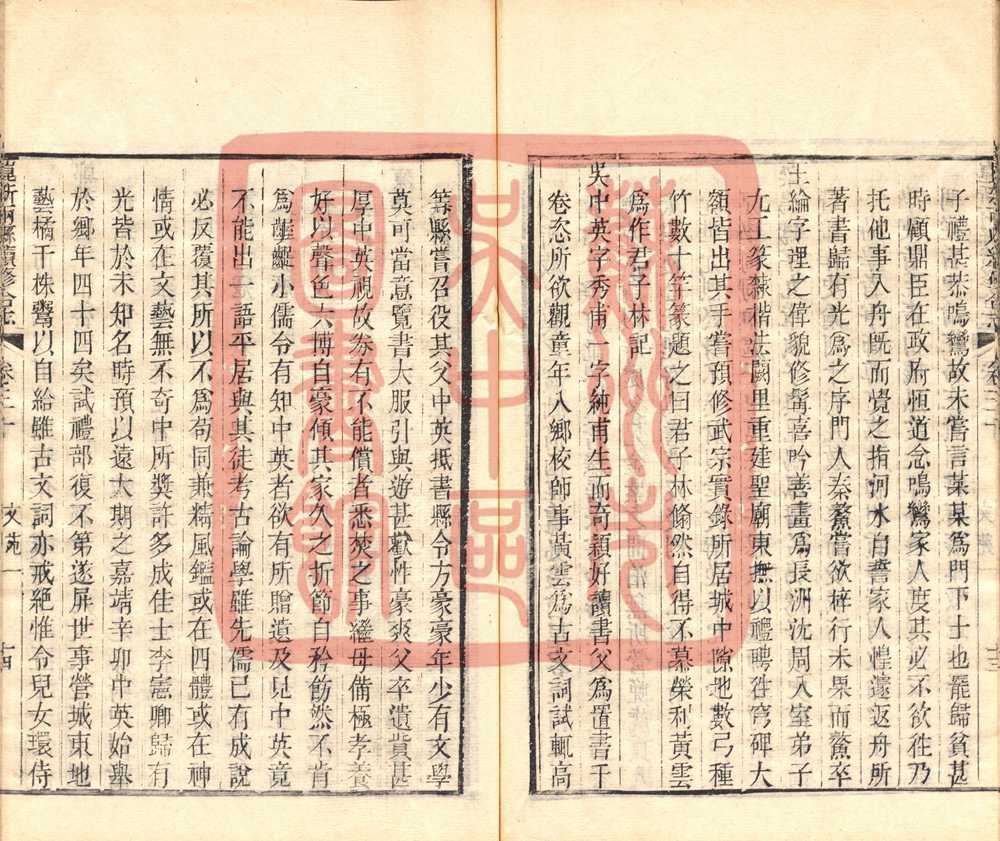 子禮甚恭鳴鸞故未嘗言某某爲門下士也罷歸貧甚
時顧鼎臣在政府恒道念鳴鸞家人度其必不欲徃乃
托他事入舟既而覺之指河水自誓家人惶遽返舟所
著書歸有光爲之序門人秦鰲嘗欲梓行未果而鰲卒
王綸字理之偉貌修髯喜吟善畫爲長洲沈周入室弟子
尤工篆隸楷法闕里重建聖廟東撫以禮聘徃穹碑大
額皆出其手嘗預修武宗實錄所居城中隙地數弓種
竹數十竿篆題之曰君子林翛然自得不慕榮利黃雲
爲作君子林記
吳中英字秀甫一字純甫生而奇穎好讀書父爲置書千
卷恣所欲觀童年入鄉校師事黃雲爲古文詞試輒高
等縣嘗召役其父中英抵書縣令方豪豪年少有文學
莫可當意覽書大服引與遊甚歡性豪爽父卒遺貲甚
厚中英視故券有不能償者悉焚之事繼母備極孝養
好以聲色六博自豪傾其家久之折節自矜飭然不肯
爲齷齪小儒令有知中英者欲有所贈遺及見中英竟
不能出一語平居與其徒考古論學雖先儒已有成說
必反覆其所以不爲苟同兼精風鑑或在四體或在神
情或在文藝無不奇中所獎許多成佳士李憲卿歸有
光皆於未知名時預以遠大期之嘉靖辛卯中英始舉
於鄉年四十四矣試禮部復不第遂屏世事營城東地
藝橘千株鬻以自給雖古文詞亦戒絶惟令兒女環侍
崑新兩縣續修合志
卷三十
文苑一
十四
吳中區
圖書館